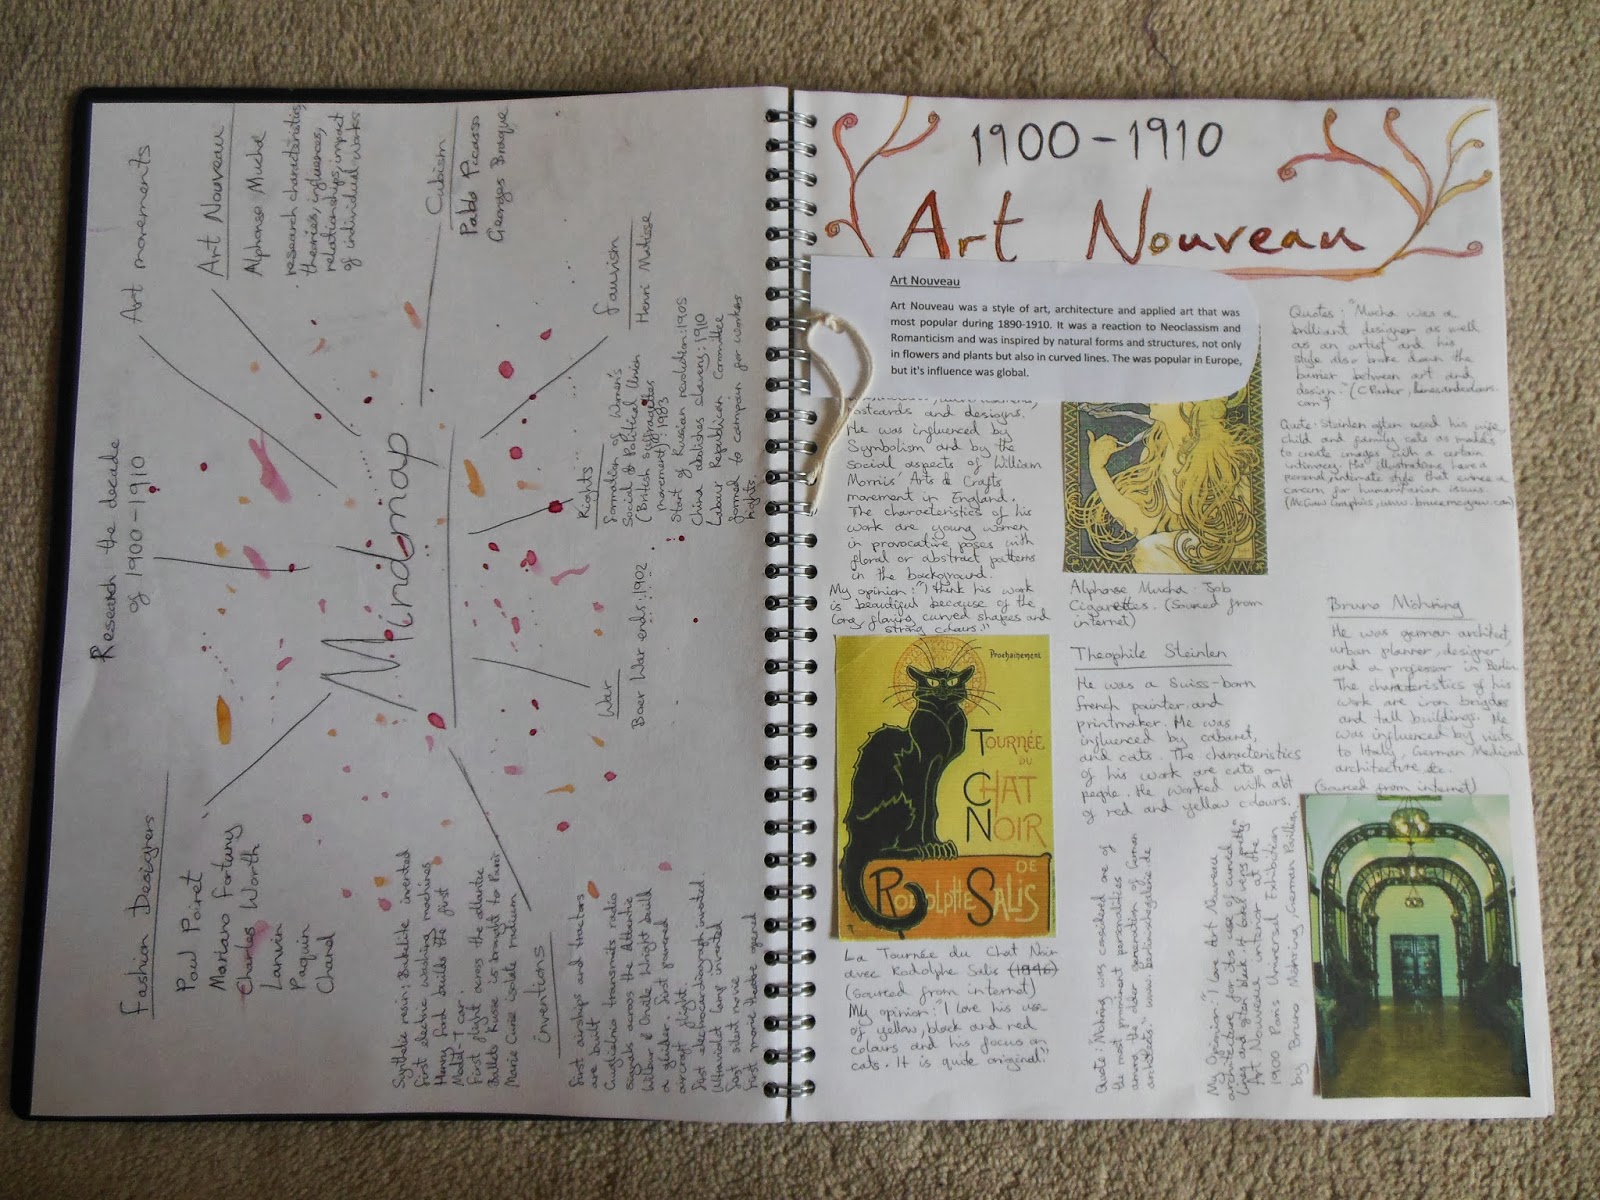 Research the decade
of 1900-1910
Mindmap
Art movements
Art Nouveau
Alphonse Mucha
research characteristics,
theories, influences,
relationships, impact
of individual works
Cubism
Pablo Picasso
Georges Braque
Fauvism
Henri Matisse
Rights
Formation of Women's
Social & Political Union
(British suffragettes
movement): 1983
Start of Russian revolution: 1905
China abolishes slavery: 1910
Labour Republican Committee
formed to campain for workers
rights.
War
Boer War ends: 1902
Fashion Designers
Paul Poiret
Mariano Fortuny
Charles Worth
Lanvin
Paquin
Chanel
Inventions
Synthetic resin: Bakelite invented
First electric washing machines
Henry Ford builds the first
Model-T car.
First flight across the atlantic
Ballets Russe is brought to Paris
Marie Curie isolate radium
First airships and tractors
are built
Guglielmo transmits radio
signals across the Atlantic
Wilbur & Orville Wright build
a glider. First powered
aircraft flight.
First electrocardiograph invented.
Ultraviolet lamp invented
First silent movie
First movie theatre opened
1900-1910
Art Nouveau
Art Nouveau
Art Nouveau was a style of art, architecture and applied art that was
most popular during 1890-1910. It was a reaction to Neoclassism and
Romanticism and was inspired by natural forms and structures, not only
in flowers and plants but also in curved lines. The was popular in Europe,
but it's influence was global.
postcards and designs.
He was influenced by
Symbolism and by the
social aspects of William
Morris' Arts & Crafts
movement in England.
The characteristics of his
work are young women
in provocative poses with
floral or abstract patterns
in the background.
My opinion: "I think his work
is beautiful because of the
long, flowing curved shapes and
strong colours."
Prochainement
TOURNÉE
DU
CHAT
NOIR
DE
RODOLPHE SALIS
La Tournée du Chat Noir
avec Rodolphe Salis (1896)
(Sourced from internet)
My opinion: "I love his use
of yellow, black and red
colours and his focus on
cats. It is quite original."
Alphonse Mucha - Job
Cigarettes. (Sourced from
internet)
Theophile Steinlen
He was a Swiss-born
french painter and
printmaker. He was
influenced by cabaret,
and cats. The characteristics
of his work are cats or
people. He worked with a lot
of red and yellow colours.
Quote: "Möhring was considered one of
the most prominent personalities
among the older generation of German
architects."
Quotes: "Mucha was a
brilliant designer as well
as an artist and his
style also broke down the
barrier between art and
design." (C Parker, linesandcolours.
com)
Quote: Steinlen often used his wife,
child and family cats as models
to create images with a certain
intimacy. His illustrations have a
personal, intimate style that evince a
concern for humanitarian issues
(McGaw Graphics, www.brucemcgaw.com)
Bruno Möhring
He was german architect,
urban planner, designer
and a professor in Berlin.
The characteristics of his
work are iron bridges
and tall buildings. He
was influenced by visits
to Italy, German Medieval
architecture etc.
(Sourced from internet)
My opinion: "I love Art Nouveau
architecture for its use of curved
lines and
Art Nouveau interior at the
1900 Paris Universal Exhibition
by Bruno Möhring, German Pavillion.